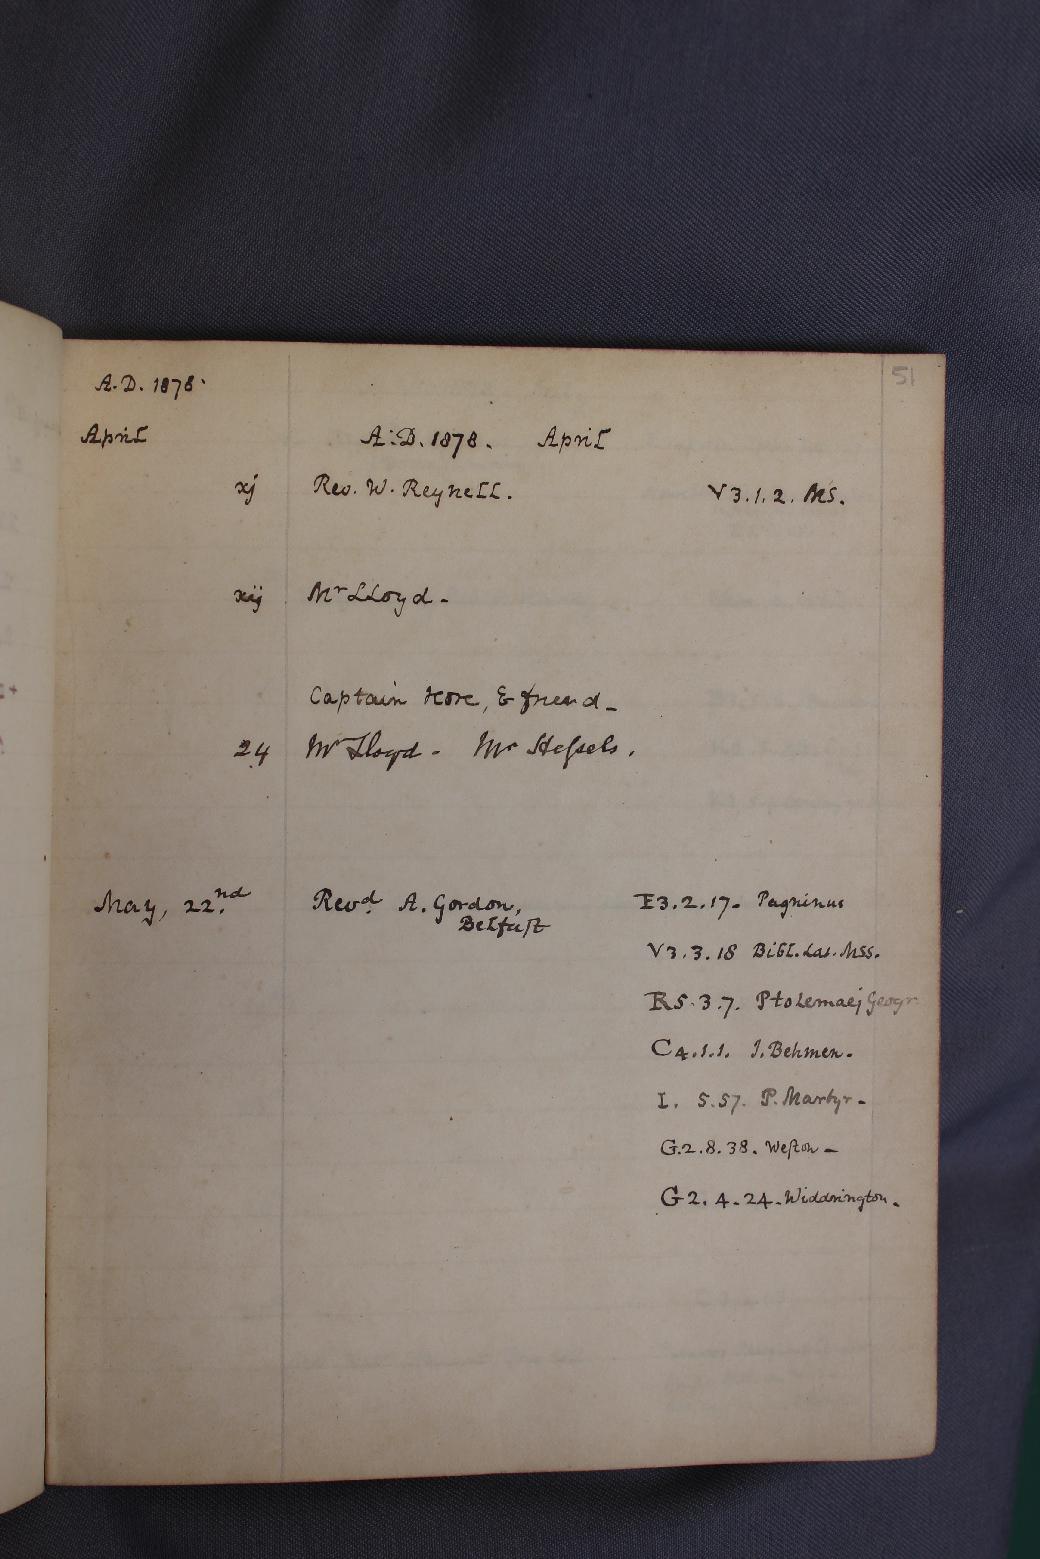 51
A.D. 1878.
April A.D. 1878. April
xj Rev. W. Reynell. V3.1.2. MS.
xij Mr Lloyd -
Captain Hore, & friend -
24 Mr Lloyd - Mr Hessels.
May, 22.nd Revd. A. Gordon, E3.2.17. Pagninus
Belfast
V3.3.18 Bibl. Las. Mss.
R5.3.7. Ptolemaej Geogr
C4.1.1. J. Behmen.
I. 5.57. P. Martyr -
G.2.8.38. Weston -
G2.4.24. Widdrington.